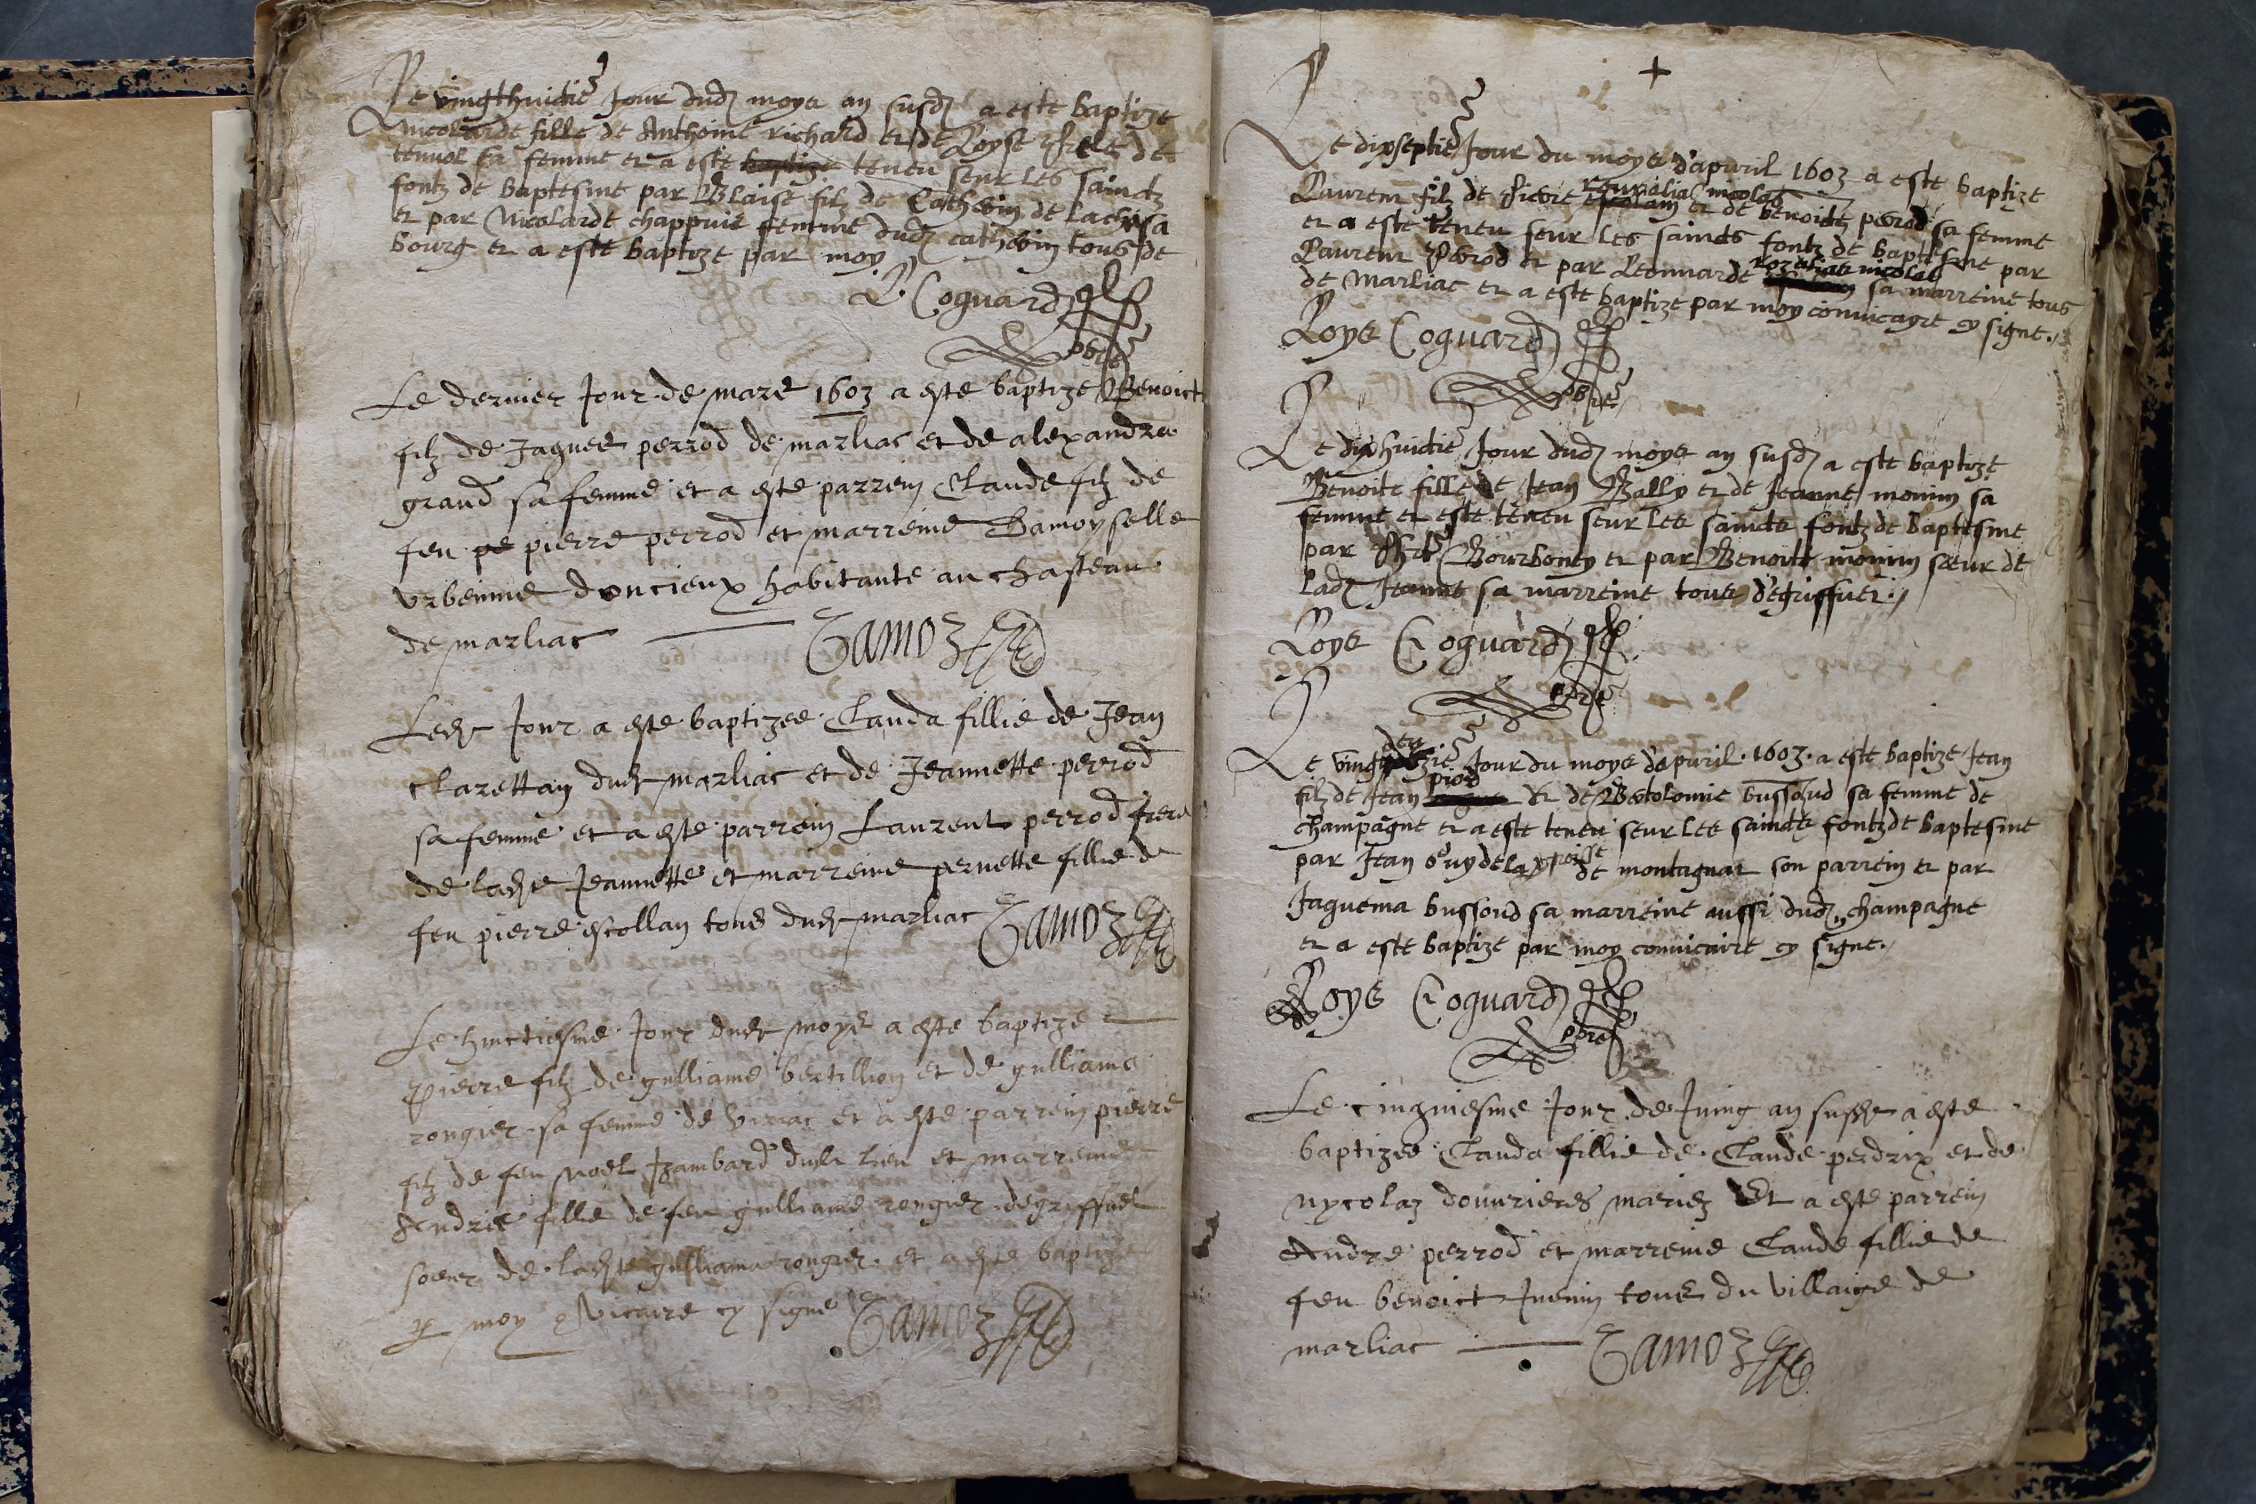 Le vingthuictie Jour dud moys an susd a este baptize
Nicolarde fille de Anthoine richard et de Loyse de
sa femme et a este baptize teneu seur les sainctz
fontz de baptesme par Blaise filz de Cathein de
et par Nicolarde chappuis femme dud cathein tous de
bourg et a este baptize par moy
Coguard
pbre
Le dernier Jour de mars 1603 a este baptize Benoict
filz de Jaques perrod de marliac et de alexandra
grand sa femme et a este parrein Claude filz de
feu pe pierre perrod et marreine Damoyselle
urbenne doncieux habitante au chasteau
de marliac Camoz
Ledt Jour a este baptizee Clauda fillie de Jean
Clarettan dudt marliac et de Jeannette perrod
sa femme et a este parrein Laurent perrod frere
de ladte Jeannette et marreine pernette fillie de
feu pierre escollan tous dudt marliac Camoz
Le huictiesme Jour dudt moys a este baptize
Pierre filz de gulliame bertillion et de gulliama
rongier sa femme de et a este parrein pierre
filz de feu Noel Jzambard dudt lieu et marreine
Andrie fille de feu gulliame rongier de griffuel
soeur de ladte gulliama rongier et a este baptize
p moy vicaire cy signe Camoz
Le dixseptie Jour du moys d'apvril 1603 a este baptize
nicolas
Laurent filz de Pierre et de benoicte perrod sa femme
et a este teneu seur les saincts fontz de baptesme par
nicolas
Laurent Perrod et par Leonnarde sa marreine tous
de Marliac et a este baptize par moy convicayre cy signe
Loys Coguard
pbre
Le dixhuictie Jour dud moys an susd a este baptize
Benoite fille de Jean Bally et de Jeanne monin sa
femme et este teneu seur les saincts fontz de baptesme
par Bourboney et par Benoite monin soeur de
lad Jeanne sa marreine tous de griffuel
Loys Coguard
pbre
Le vingt Jour du moys d'apvril 1603 a este baptize Jean
piod
filz de Jean et de Bertolomie bussoud sa femme de
champagne et a este teneu seur les saincts fontz de baptesme
par Jean de montagnat son parrein et par
Jaquema bussoud sa marreine aussi dud champagne
et a este baptize par moy convicaire cy signe
Loys Coguard
pbre
Le cinquiesme Jour de Juing an susdt a este
baptizee Clauda fillie de Claude perdrix et de
nycolaz douvrieres mariez Et a este parrein
Andre perrod et marreine Claude fillie de
feu benoict Juenin tous du villaige de
marliac Camoz